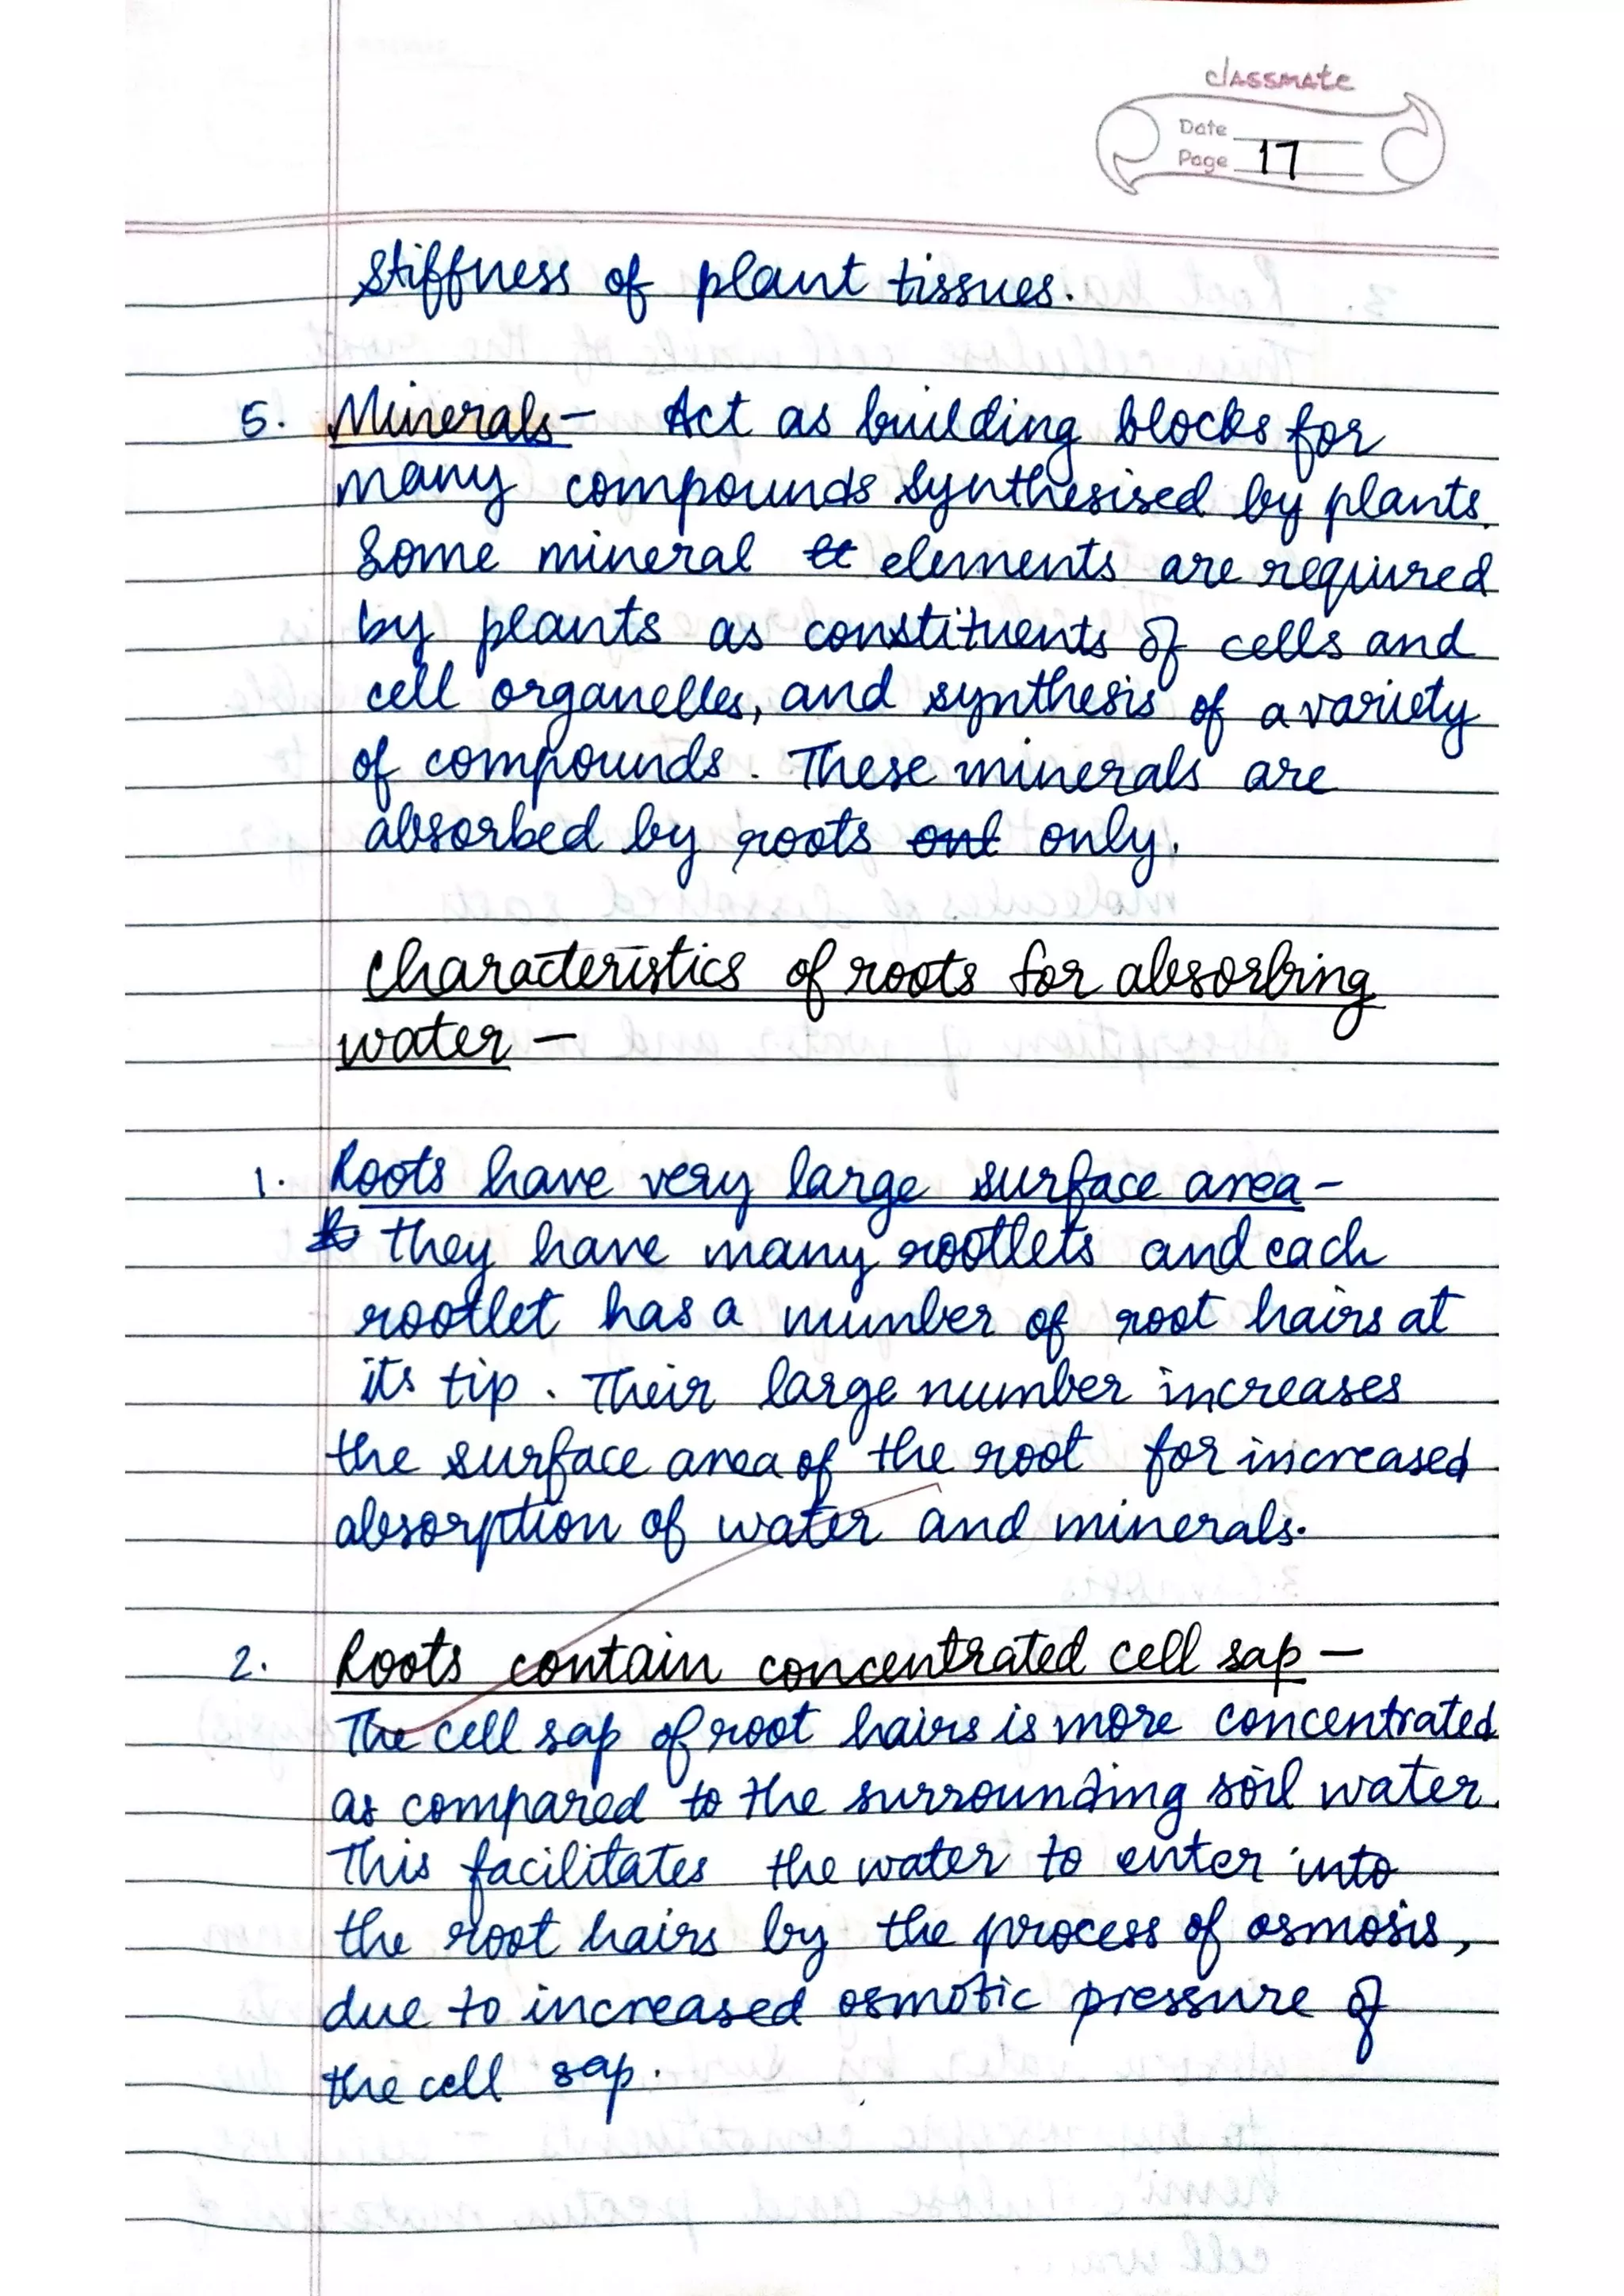 classmate
Date
Page 17
stiffness of plant tissues.
5. Minerals - Act as building blocks for
many compounds synthesised by plants.
Some mineral elements are required
by plants as constituents of cells and
cell organelles, and synthesis of a variety
of compounds. These minerals are
absorbed by roots only.
Characteristics of roots for absorbing
water -
1. Roots have very large surface area -
they have many rootlets and each
rootlet has a number of root hairs at
its tip. Their large number increases
the surface area of the root for increased
absorption of water and minerals.
2. Roots contain concentrated cell sap -
The cell sap of root hairs is more concentrated
as compared to the surrounding soil water.
This facilitates the water to enter into
the root hairs by the process of osmosis,
due to increased osmotic pressure of
the cell sap.